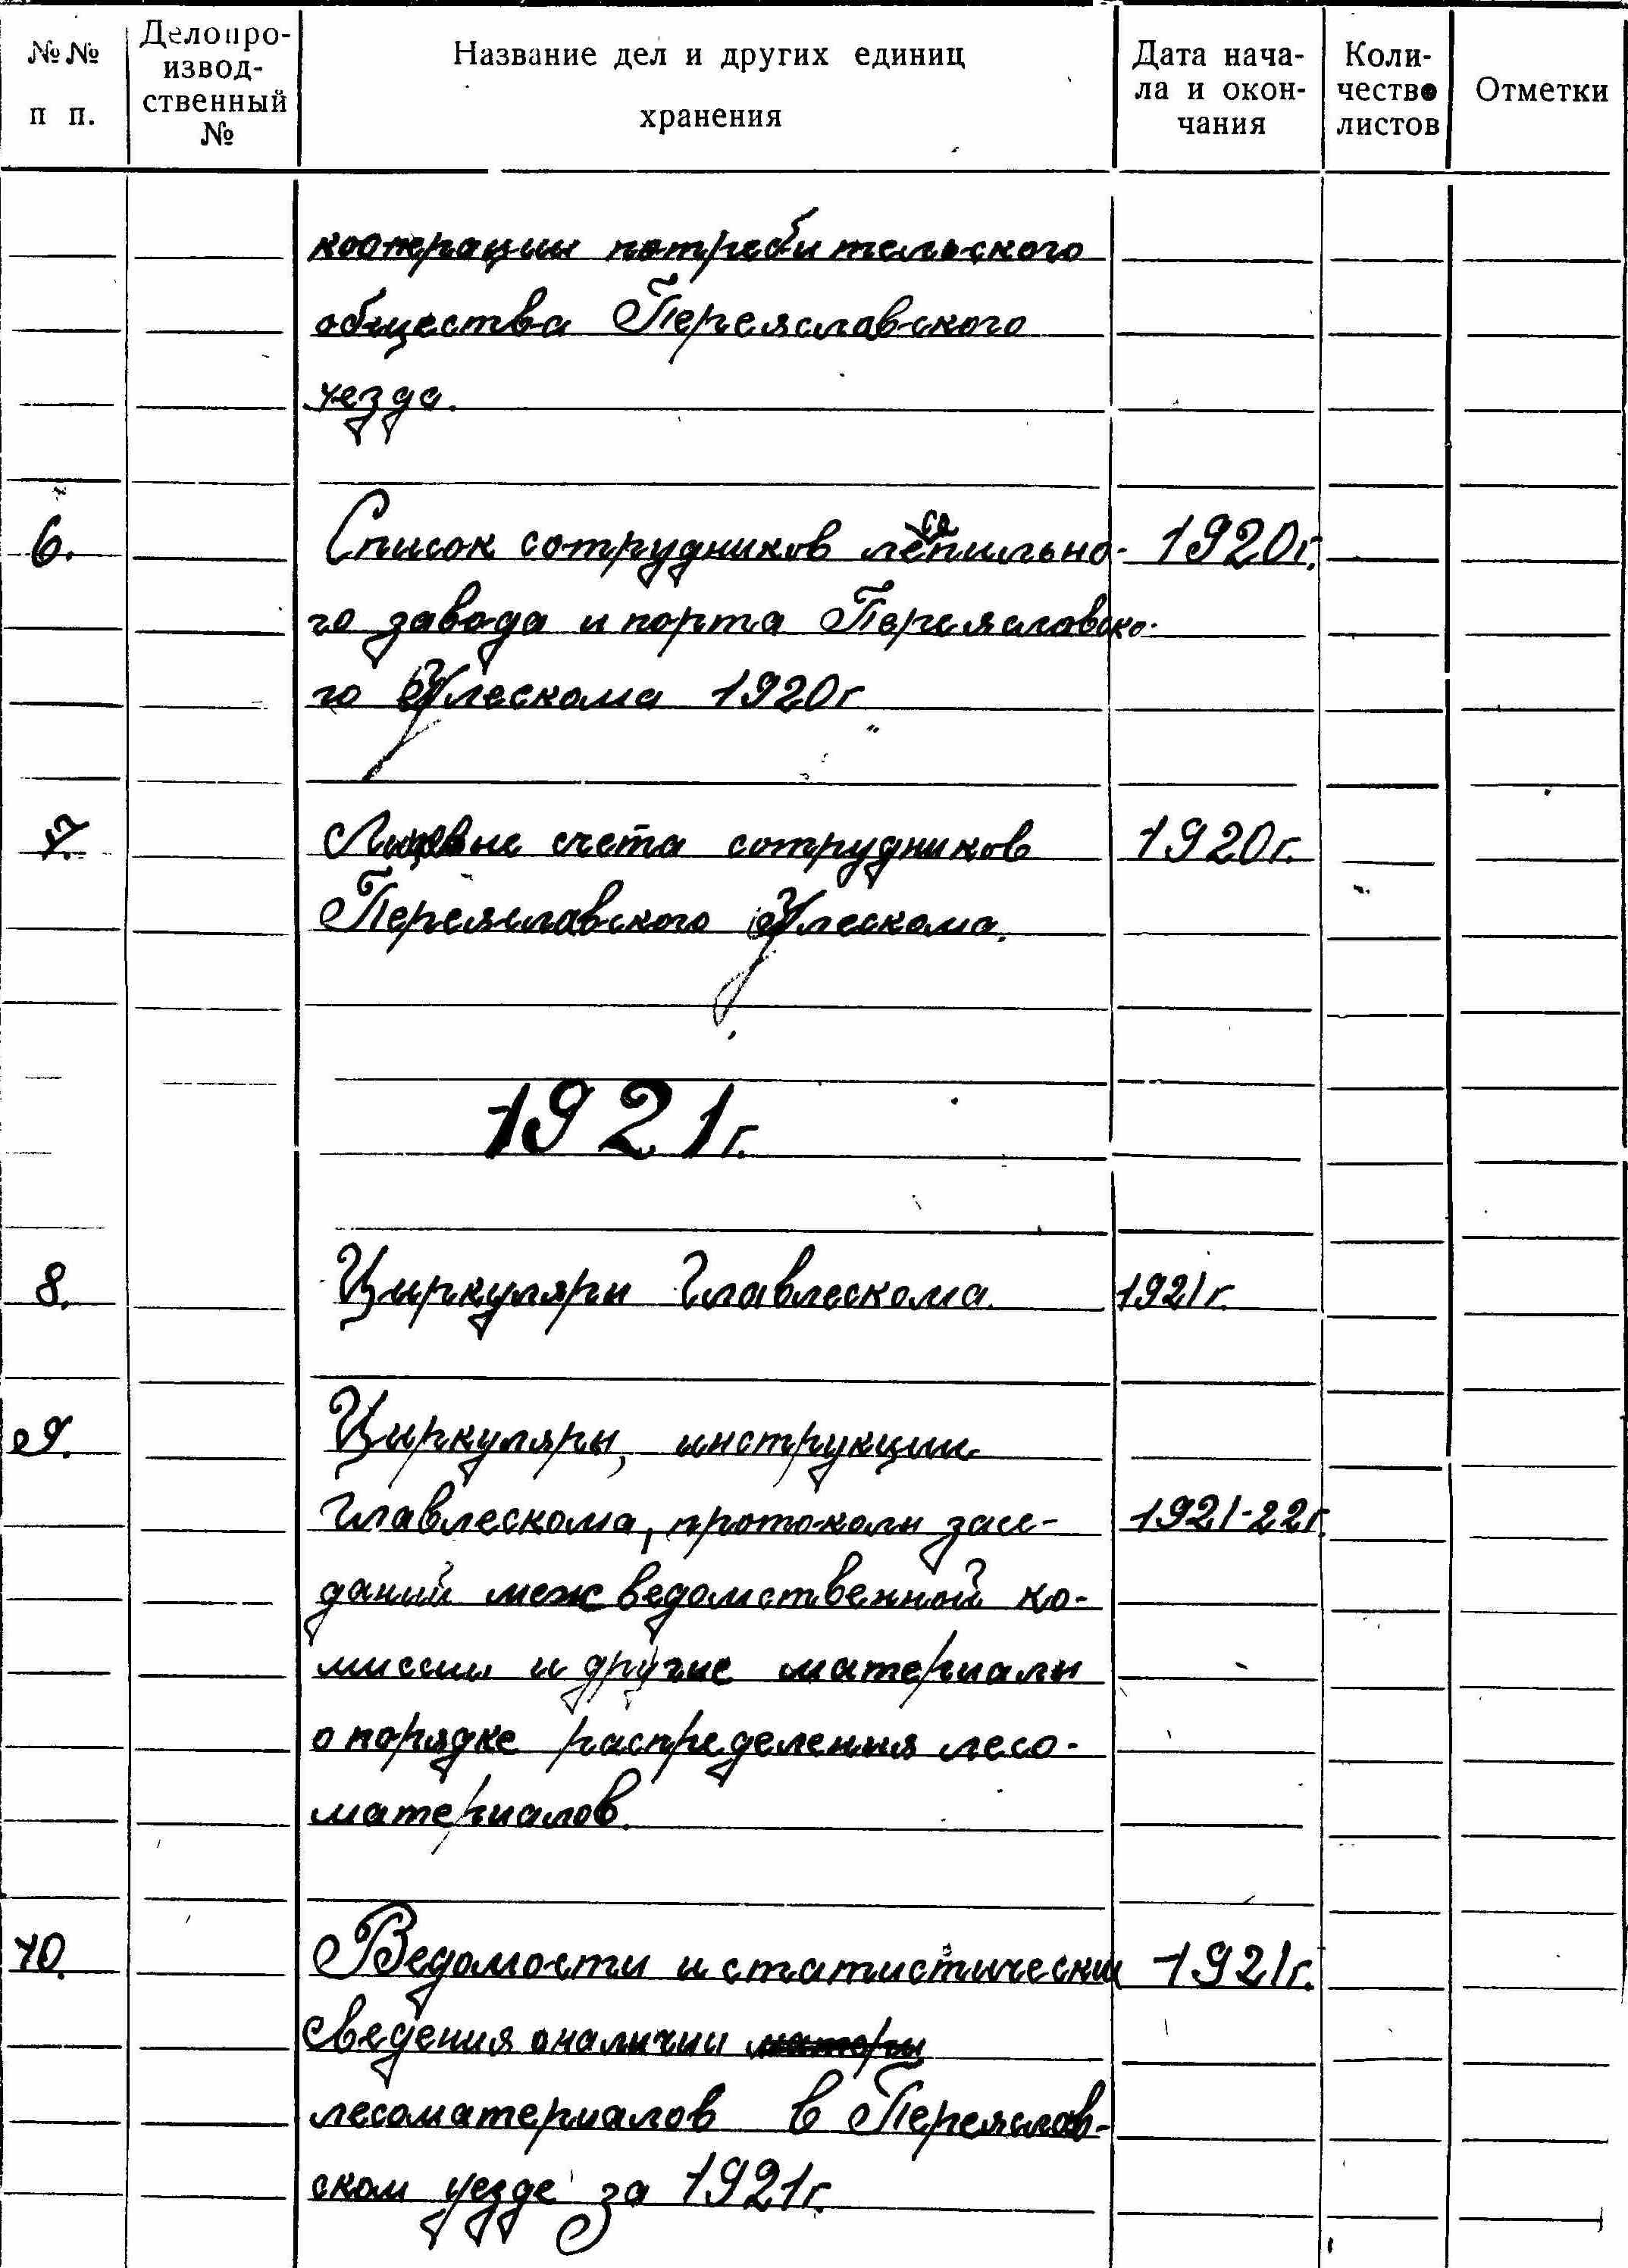 №№ п п.
Делопроизвод-ственный №
Название дел и других единиц
хранения
Дата нача-
ла и окон-
чания
Коли-
чество
листов
Отметки
кооперации потребительского
общества Переяславского
уезда.
6. Список сотрудников лесопильно- 1920г.
го завода и порта Переяславско-
го Улескома 1920г.
7. Лицевые счета сотрудников 1920г.
Переяславского Улескома.
1921г.
8. Циркуляры Главлескома. 1921г.
9. Циркуляры, инструкции
Главлескома, протоколы засе- 1921-22г.
даний межведомственной ко-
миссии и другие материалы
о порядке распределения лесо-
материалов.
10. Ведомости и статистические 1921г.
сведения о наличии матери
лесоматериалов в Переяслав-
ском уезде за 1921г.